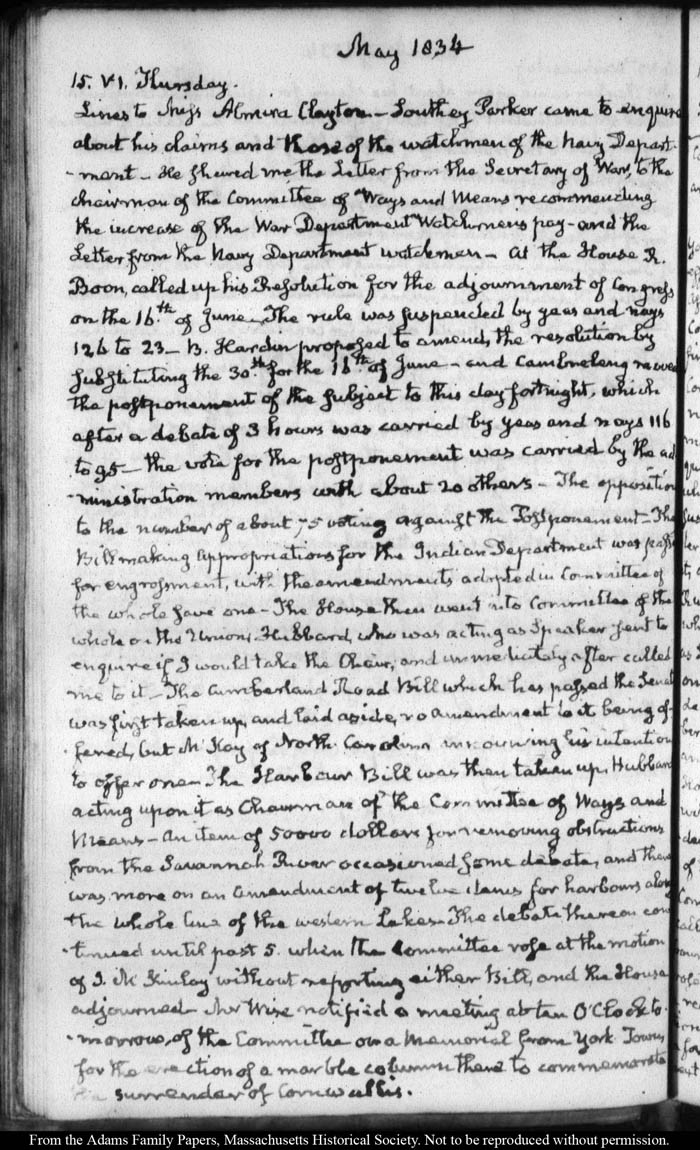 May 1834
15. VI. Thursday.
Lines to Miss Almira Clayton — Southey Parker came to enquire
about his claims and those of the watchmen of the Navy Depart-
-ment — He shewed me the Letter from the Secretary of War, to the
chairman of the Committee of Ways and Means recommending
the increase of the War Department Watchmen's pay — and the
Letter from the Navy Department watchmen — At the House R.
Boon, called up his Resolution for the adjournment of Congress
on the 16.th of June. The rule was suspended by yeas and nays
126 to 23 — B. Hardin proposed to amend, the resolution by
substituting the 30.th for the 16.th of June — and Cambreleng moved
the postponement of the subject to this day fortnight, which
after a debate of 3 hours was carried by yeas and nays 116
to 95 — the vote for the postponement was carried by the ad
-ministration members with about 20 others — The opposition
to the number of about 75 voting against the Postponement — The
Bill making appropriations for the Indian Department was passed
for engrossment, with the amendments adopted in Committee of
the whole save one — The House then went into Committee of the
whole on the Union. Hubbard, who was acting as Speaker sent to
enquire if I would take the Chair, and immediately after called
me to it — The Cumberland Road Bill which has passed the Senate
was first taken up, and laid aside, no amendment to it being of-
-fered, but McKay of North Carolina his intention
to offer one — The Harbour Bill was then taken up, Hubbard
acting upon it as Chairman of the Committee of Ways and
Means — An item of 50000 dollars for removing obstructions
from the Savannah River occasioned some debate, and there
was more on an amendment of twelve items for harbours along
the whole line of the western Lakes — The debate thereon con
-tinued until past 5. when the Committee rose at the motion
of J. McKinlay without reporting either Bill, and the House
adjourned — Mr Wise notified a meeting at ten O'Clock to-
-morrow, of the Committee on a Memorial from York Town,
for the erection of a marble column there to commemorate
the surrender of Cornwallis.
From the Adams Family Papers, Massachusetts Historical Society. Not to be reproduced without permission.